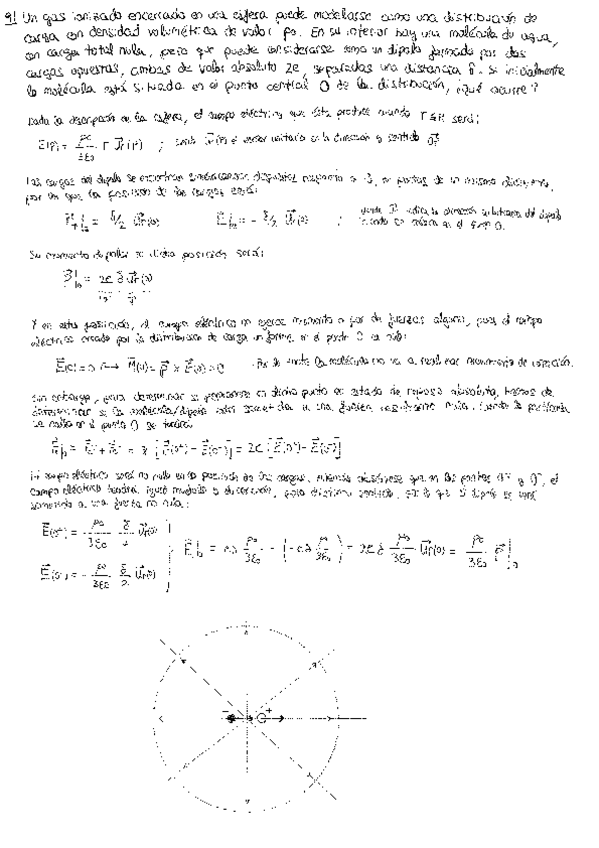 9| Un gas ionizado encerrado en una esfera puede modelarse como una distribución de
carga con densidad volumétrica de valor ρ₀. En su interior hay una molécula de agua,
con carga total nula, pero que puede considerarse como un dipolo formado por dos
cargas opuestas, ambas de valor absoluto 2e, separadas una distancia δ. Si inicialmente
la molécula está situada en el punto central O de la distribución, ¿qué ocurre?
Dada la descripción de la esfera, el campo eléctrico que ésta produce cuando r≤R será:
E(r) = ρ₀/3ε₀ r u⃗r(r) ; el vector unitario en la dirección y sentido
Las cargas del dipolo se encuentran dispuestas respecto a O, en puntos de un mismo diámetro,
por lo que la posición de las cargas será:
= δ/2 u⃗r(0) = - δ/2 u⃗r(0) ; indica la dirección del dipolo
cuando se en el punto O.
Su momento dipolar en dicha posición será:
= 2e δ u⃗r(0)
Y en esta posición, el campo eléctrico no ejerce momento o par de fuerzas alguno, pues el campo
eléctrico creado por la distribución de carga uniforme en el punto O es nulo:
E⃗(0) = 0 → M⃗(0) = p⃗ × E⃗(0) = 0 · Por lo tanto la molécula no va a realizar movimiento de rotación.
Sin embargo, para determinar si permanece en dicho punto en estado de reposo absoluto, hemos de
determinar si la molécula/dipolo está sometida a una fuerza resultante nula. Cuando la
molécula en el punto O se tendrá:
= 2e [E⃗(0⁺) - E⃗(0⁻)]
El campo eléctrico será no nulo en la posición de las cargas. Además obsérvese que en los puntos 0⁺ y 0⁻, el
campo eléctrico tendrá igual módulo y dirección, pero distinto sentido, por lo que el dipolo se verá
sometido a una fuerza no nula:
E⃗(0⁺) = ρ₀/3ε₀ δ/2 u⃗r(0)
E⃗(0⁻) = - ρ₀/3ε₀ δ/2 u⃗r(0)
= 2e δ ρ₀/3ε₀ u⃗r(0) = ρ₀/3ε₀ p⃗|₀
- +